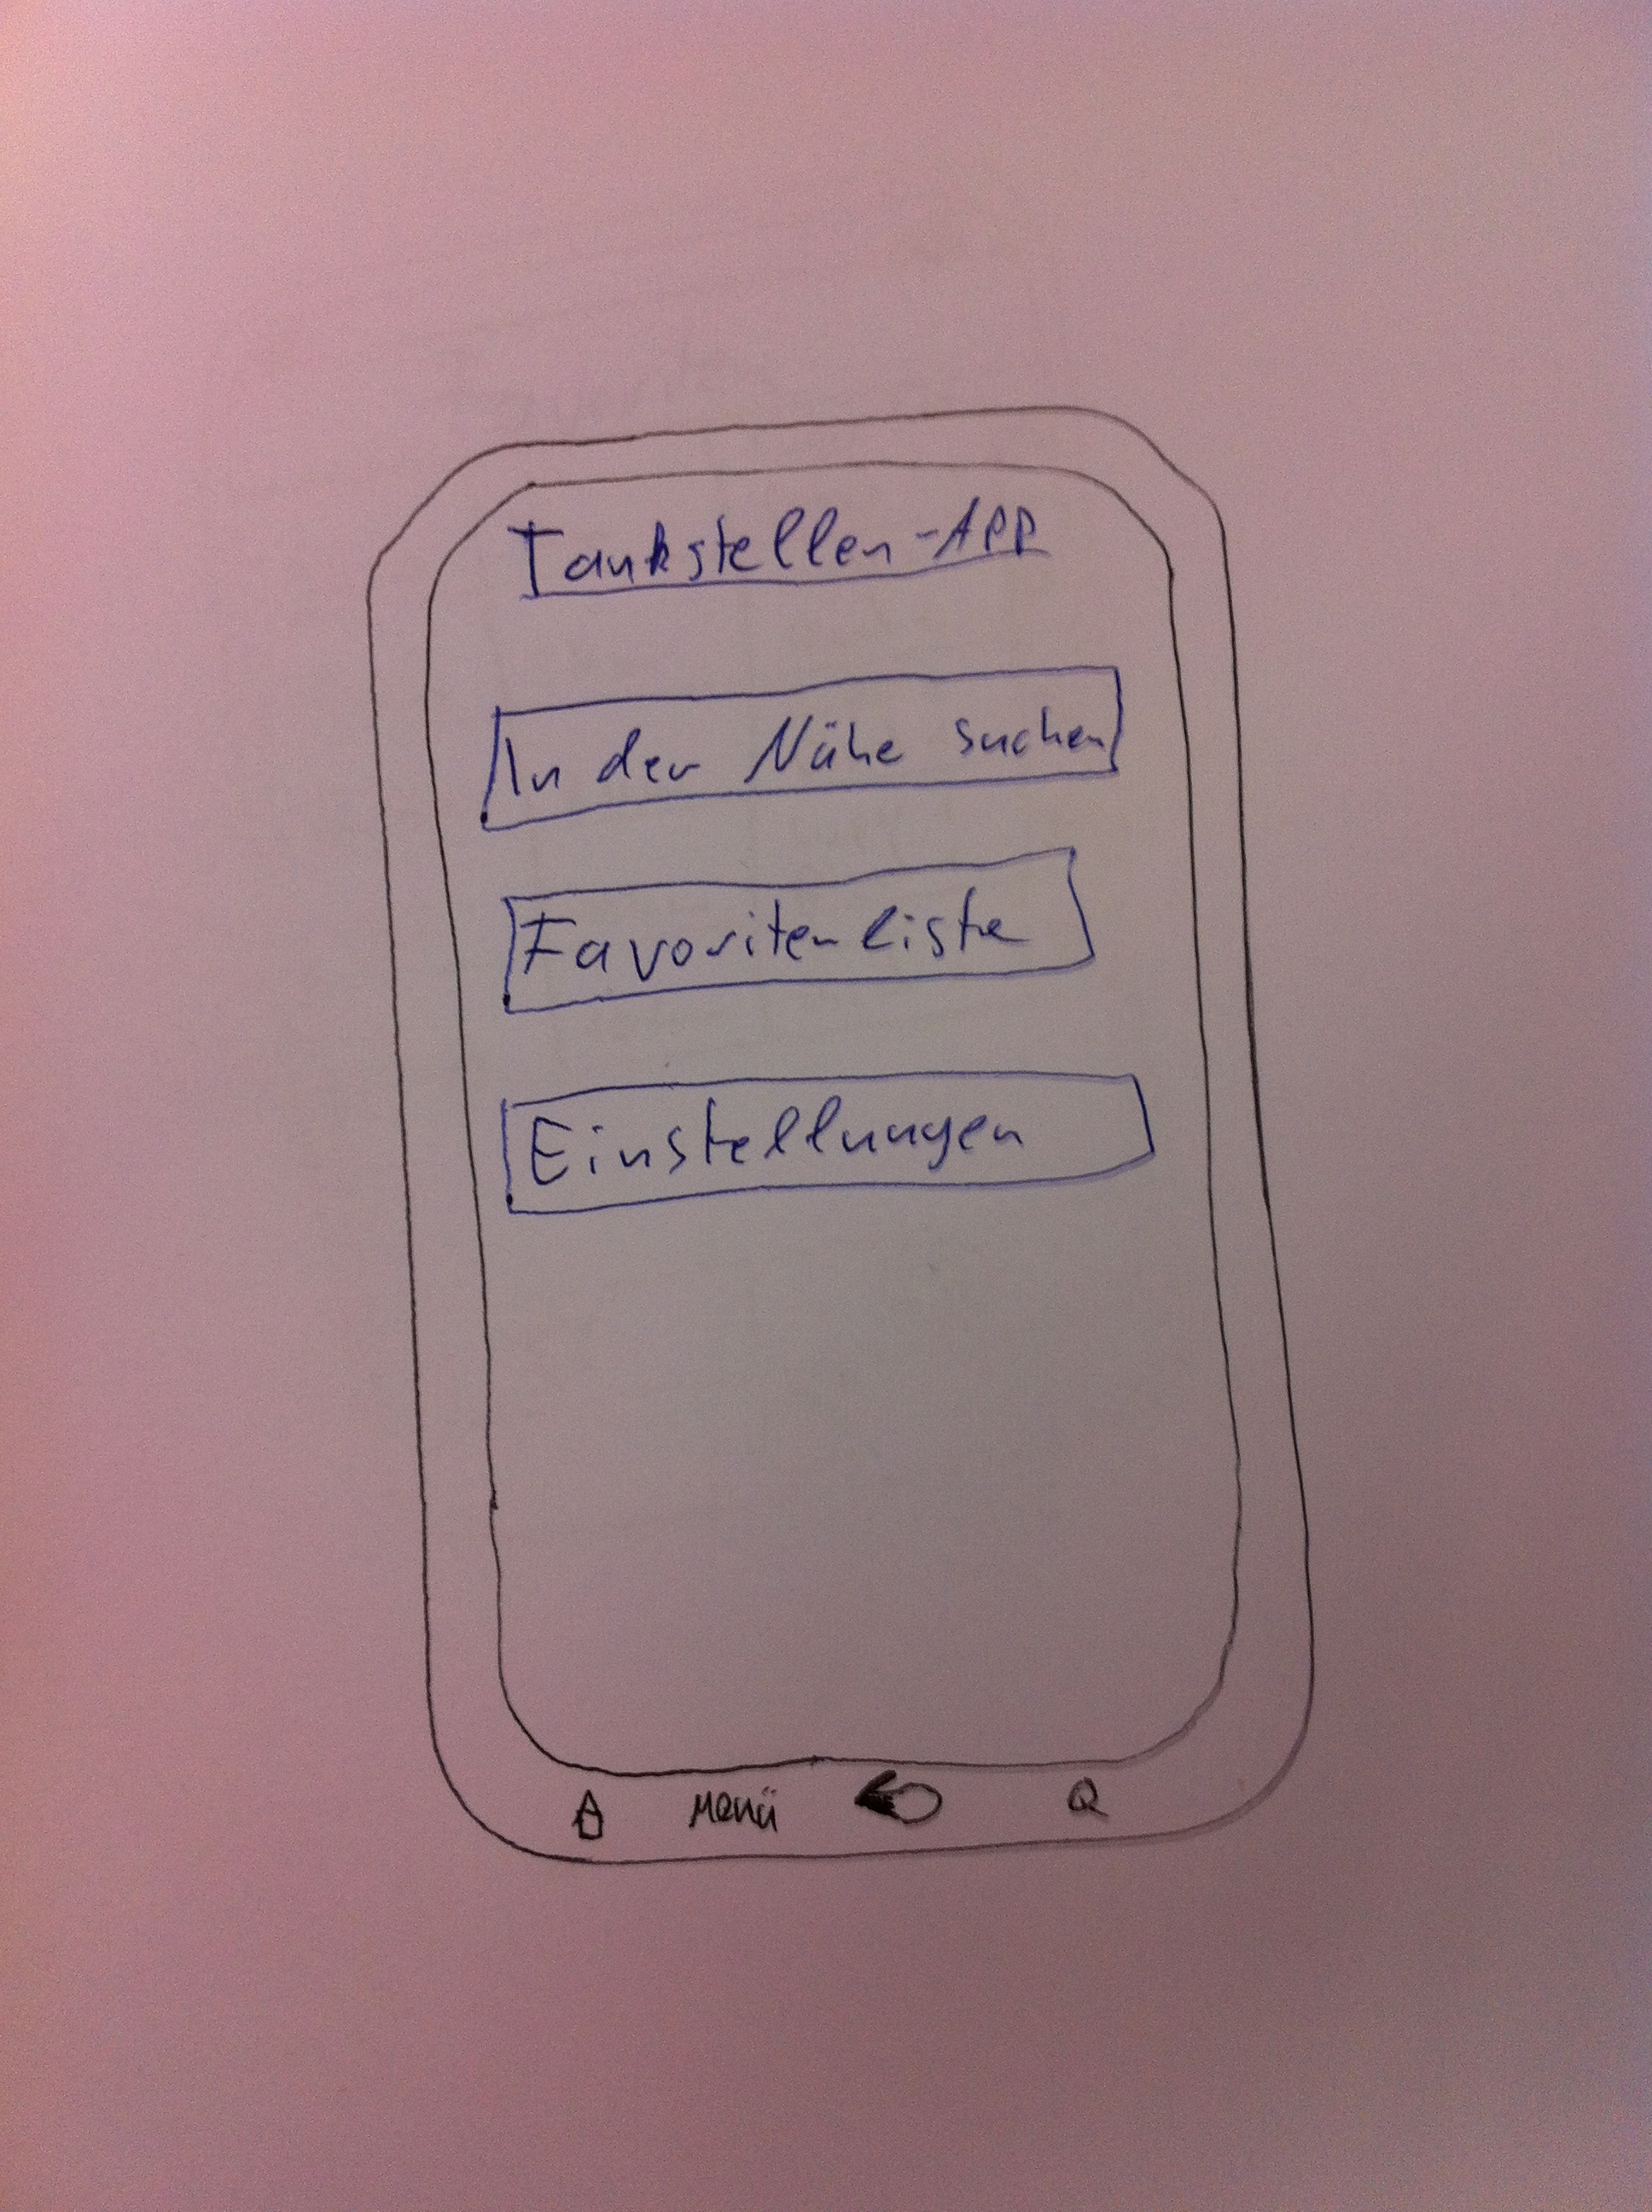 Tankstellen-App
In der Nähe suchen
Favoritenliste
Einstellungen
Menü